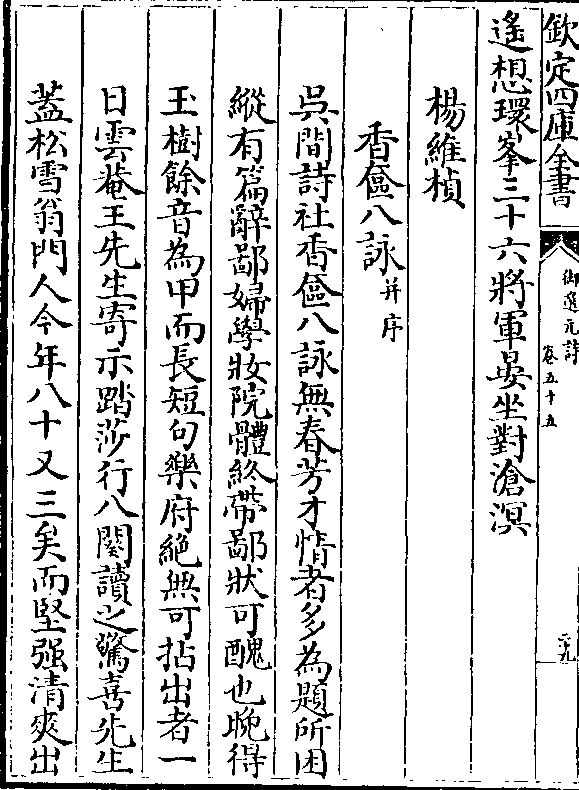 欽定四庫全書
御選元詩
卷五十五
二十九
遙想環峯三十六將軍晏坐對滄溟
楊維楨
香奩八詠并序
吳間詩社香奩八詠無春芳才情者多為題所困
縱有篇辭鄙婦學妝院體終帶鄙狀可醜也晚得
玉樹餘音為甲而長短句樂府絕無可拈出者一
日雲菴王先生寄示踏莎行八闋讀之驚喜先生
蓋松雪翁門人今年八十又三矣而堅强清爽出